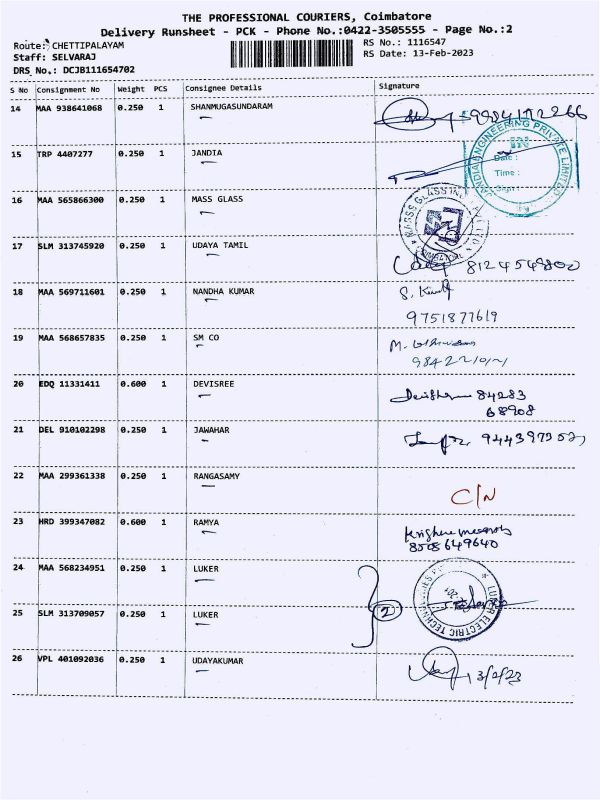 THE PROFESSIONAL COURIERS, Coimbatore
Delivery Runsheet - PCK - Phone No.:0422-3505555 - Page No.:2
Route: CHETTIPALAYAM
RS No.: 1116547
Staff: SELVARAJ
RS Date: 13-Feb-2023
DRS No.: DCJB111654702
S No Consignment No Weight PCS Consignee Details Signature
14 MAA 938641068 0.250 1 SHANMUGASUNDARAM
15 TRP 4407277 0.250 1 JANDIA
JANDIA ENGINEERING PRIVATE LIMITED
Date :
Time :
Sign :
16 MAA 565866300 0.250 1 MASS GLASS
COIMBATORE
17 SLM 313745920 0.250 1 UDAYA TAMIL
8124549800
18 MAA 569711601 0.250 1 NANDHA KUMAR
9751877619
19 MAA 568657835 0.250 1 SM CO
20 EDQ 11331411 0.600 1 DEVISREE 84283
68908
21 DEL 910102298 0.250 1 JAWAHAR
22 MAA 299361338 0.250 1 RANGASAMY C/N
23 HRD 399347082 0.600 1 RAMYA
8508649640
24 MAA 568234951 0.250 1 LUKER
2
LUKER ELECTRIC TECHNOLOGIES
25 SLM 313709057 0.250 1 LUKER
26 VPL 401092036 0.250 1 UDAYAKUMAR 13/2/23